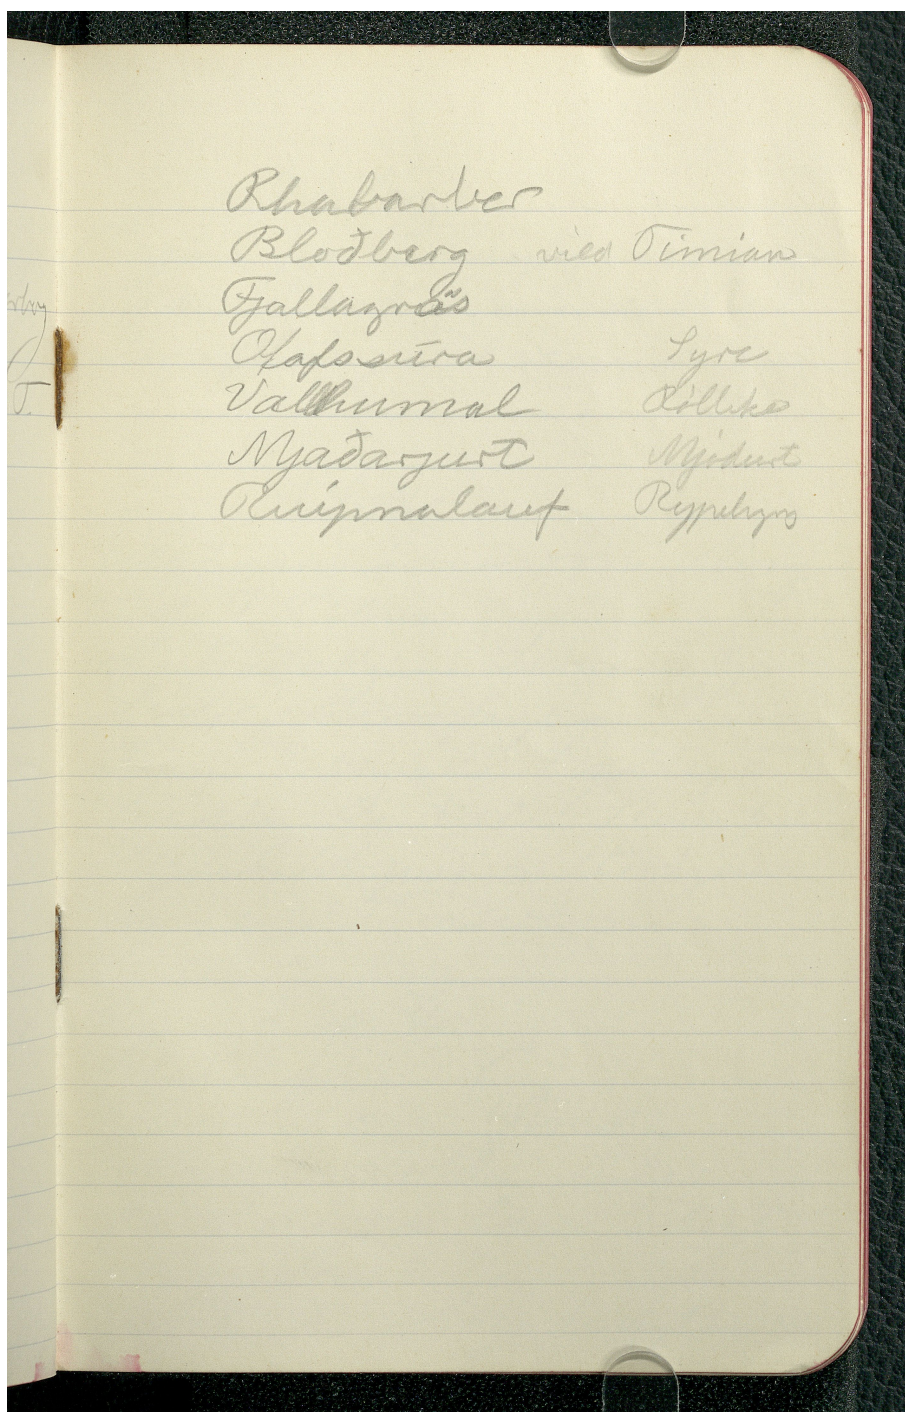 Rhabarber
Bloðberg vild Timian
Fjallagras
Olafssúra Syre
Vallhumal Röllike
Mjaðarjurt Mjødurt
Rúipnalauf Rypelyng